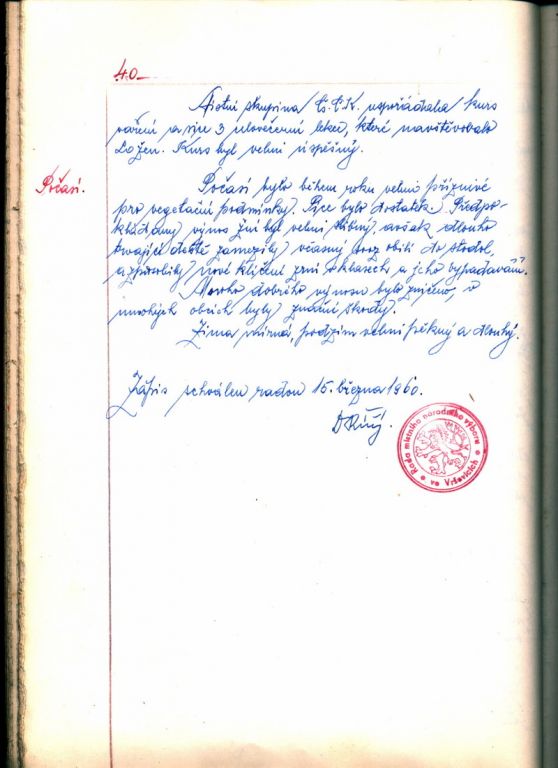 40.
Místní skupina Č.Č.K. uspořádala kurs
vaření a sice 3 večerní lekce, které navštěvovalo
žen. Kurs byl velmi úspěšný.
Počasí.
Počasí bylo během roku velmi příznivé
pro vegetační podmínky. Píce bylo dostatek. Předpo-
kládaný výnos žní byl velmi slibný, avšak dlouho
trvající deště zamezily včasný svoz obilí do stodol,
a způsobily nové klíčení zrní v klasech a jeho vypadávání.
Mnoho dobrého výnosu bylo zničeno, v
mnohých obcích byly značné škody.
Zima mírná, podzim velmi pěkný a dlouhý.
Zápis schválen radou 15. března 1960.
Rada místního národního výboru
ve Vrbovicích